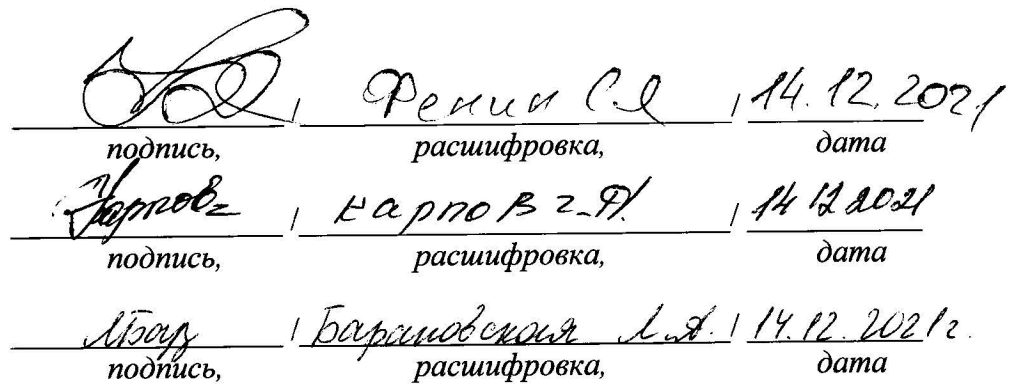 Фенин С Я / 14.12.2021
подпись, расшифровка, дата
Карпов Карпов Г.А. / 14 12 2021
подпись, расшифровка, дата
ЛБар / Барановская Л.А. / 14.12.2021г.
подпись, расшифровка, дата